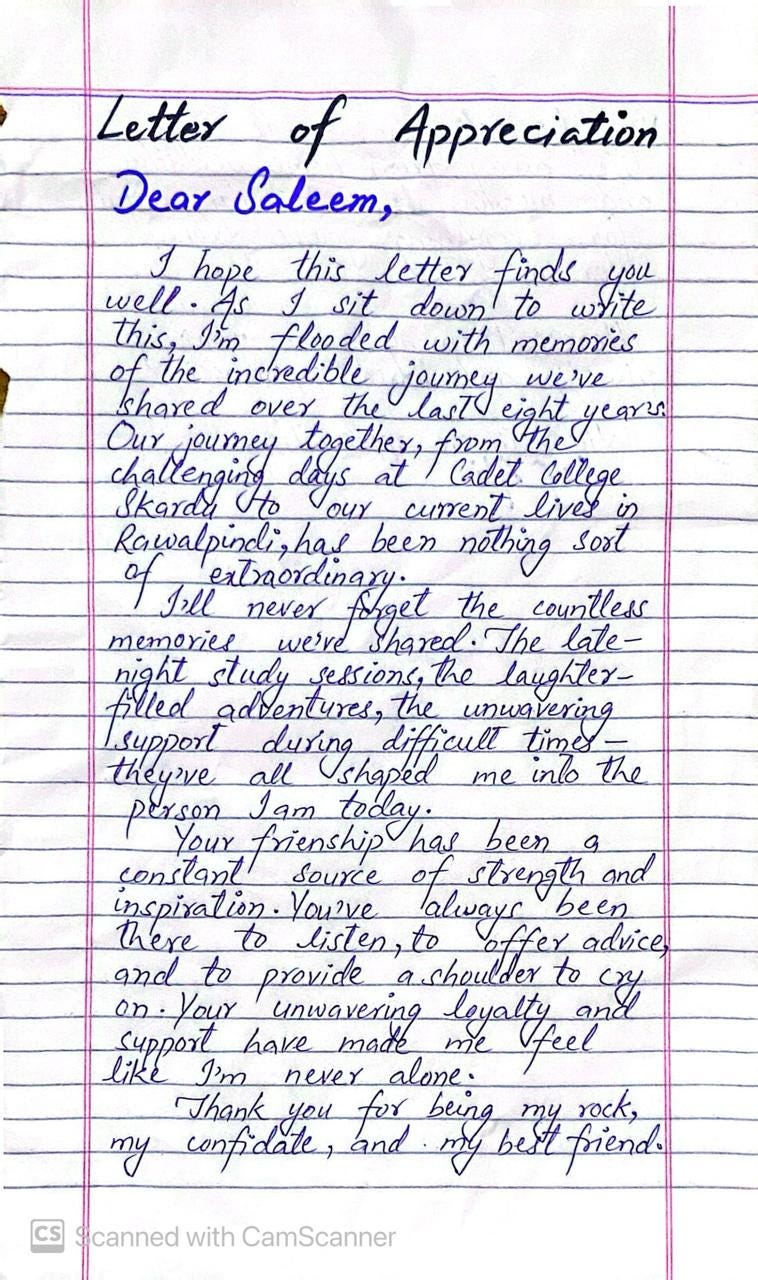 Letter of Appreciation
Dear Saleem,
I hope this letter finds you
well. As I sit down to write
this, I'm flooded with memories
of the incredible journey we've
shared over the last eight years.
Our journey together, from the
challenging days at Cadet College
Skardu to our current lives in
Rawalpindi, has been nothing sort
of extraordinary.
I'll never forget the countless
memories we've shared. The late-
night study sessions, the laughter-
filled adventures, the unwavering
support during difficult times-
they've all shaped me into the
person I am today.
Your frienship has been a
constant source of strength and
inspiration. You've always been
there to listen, to offer advice,
and to provide a shoulder to cry
on. Your unwavering loyalty and
support have made me feel
like I'm never alone.
Thank you for being my rock,
my confidate, and my best friend.
CS Scanned with CamScanner